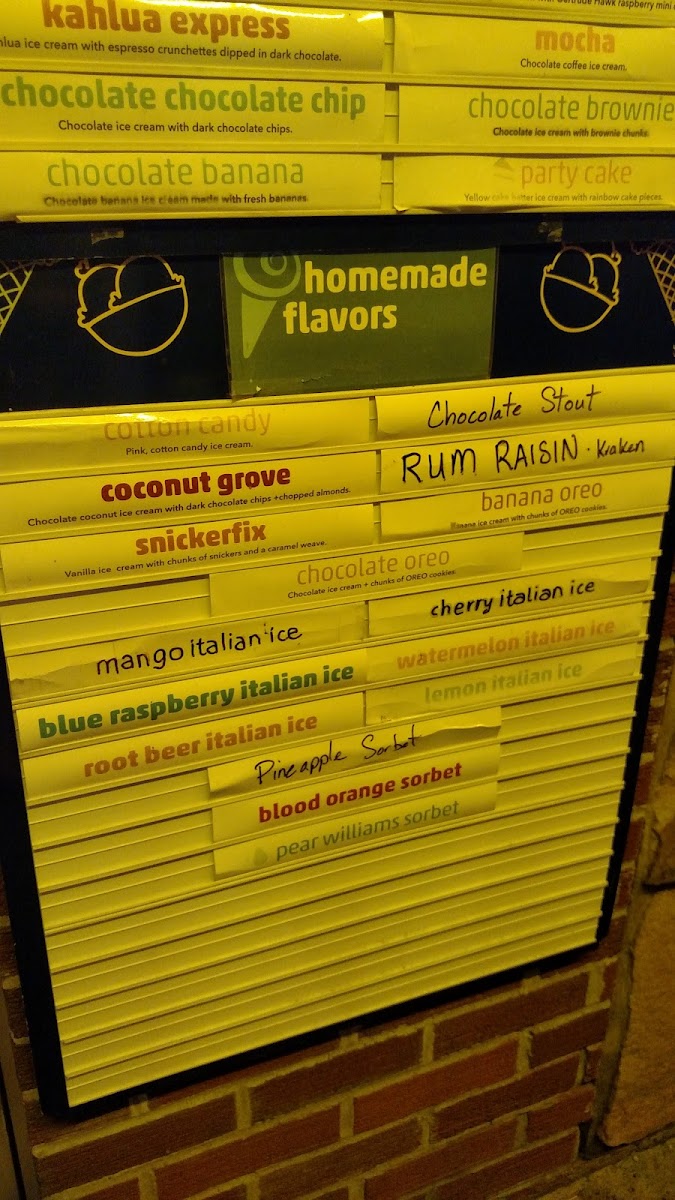 Hawk raspberry mini
kahlua express
ice cream with espresso crunchettes dipped in dark chocolate.
mocha
Chocolate coffee ice cream.
chocolate chocolate chip
Chocolate ice cream with dark chocolate chips.
chocolate brownie
Chocolate ice cream with brownie chunks.
chocolate banana
Chocolate banana ice cream made with fresh bananas.
party cake
Yellow cake batter ice cream with rainbow cake pieces.
homemade
flavors
cotton candy
Pink, cotton candy ice cream.
Chocolate Stout
coconut grove
Chocolate coconut ice cream with dark chocolate chips +chopped almonds.
RUM RAISIN · Kraken
snickerfix
Vanilla ice cream with chunks of snickers and a caramel weave.
banana oreo
Banana ice cream with chunks of OREO cookies.
chocolate oreo
Chocolate ice cream + chunks of OREO cookies.
mango italian ice
cherry italian ice
blue raspberry italian ice
watermelon italian ice
root beer italian ice
lemon italian ice
Pineapple Sorbet
blood orange sorbet
pear williams sorbet